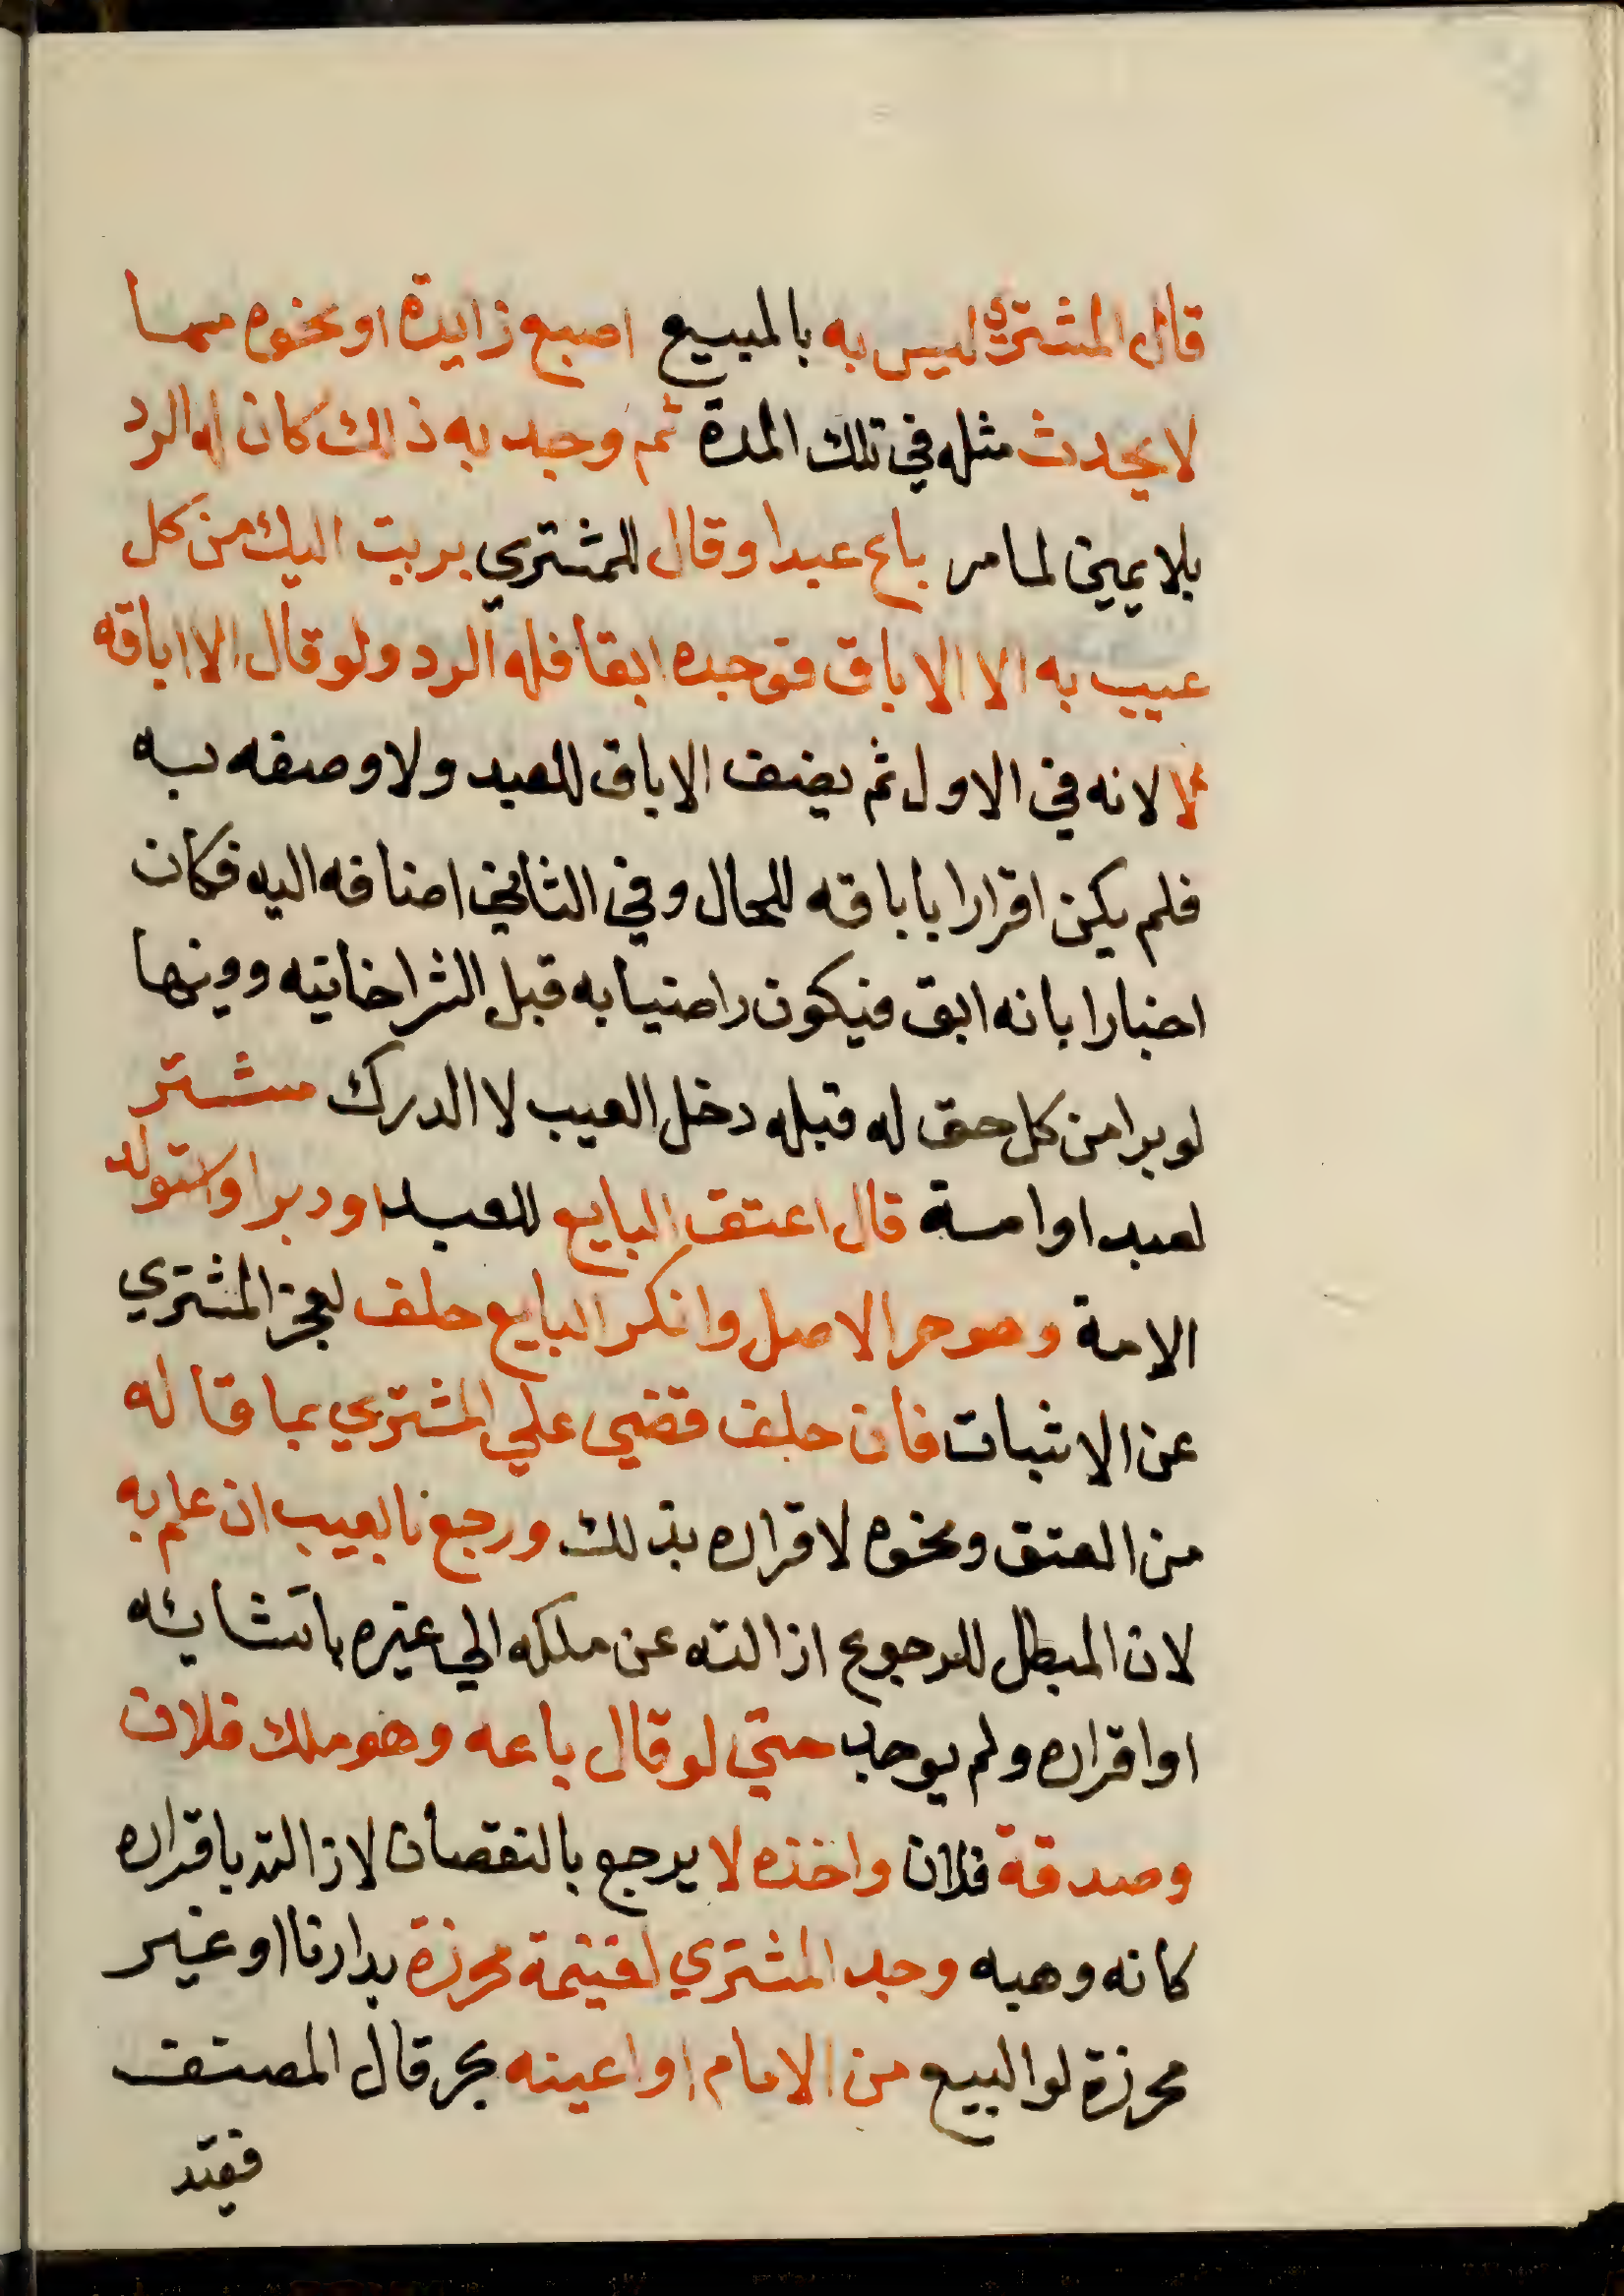 قال المشتري ليس به بالمبيع اصبع زايدة او نحوه مما
لا يحدث مثله في تلك المدة ثم وجد به ذلك كان له الرد
بلا يمين لما مر باع عبدا وقال للمشتري بريت اليك من كل
عيب به الا الاباق فوجده ابقا فله الرد ولو قال الا اباقه
لا لانه في الاول ثم يضف الاباق للعبد ولا وصفه به
فلم يكن اقرارا باباقه للحال وفي الثاني اضافه اليه فكان
اخبارا بانه ابق فيكون راضيا به قبل الشرا خانيه وفيها
لو برا من كل حق له قبله دخل العيب لا الدرك مشتر
لعبد او امة قال اعتق البايع للعبد او دبر او استولد
الامة وهو حر الاصل وانكر البايع حلف لعجز المشتري
عن الاثبات فان حلف قضي علي المشتري بما قاله
من العتق ونحوه لاقراره بذلك ورجع بالعيب ان علم به
لان المبطل للرجوع ازالته عن ملكه الي غيره بانشائه
او اقراره ولم يوجد حتي لو قال باعه وهو ملك فلان
وصدقة فلان واخذه لا يرجع بالنقصان لازالته باقراره
كانه وهبه وجد المشتري لغنيمة محرزة بدارنا او غير
محرزة لو البيع من الامام او امينه بحر قال المصنف
فقيد